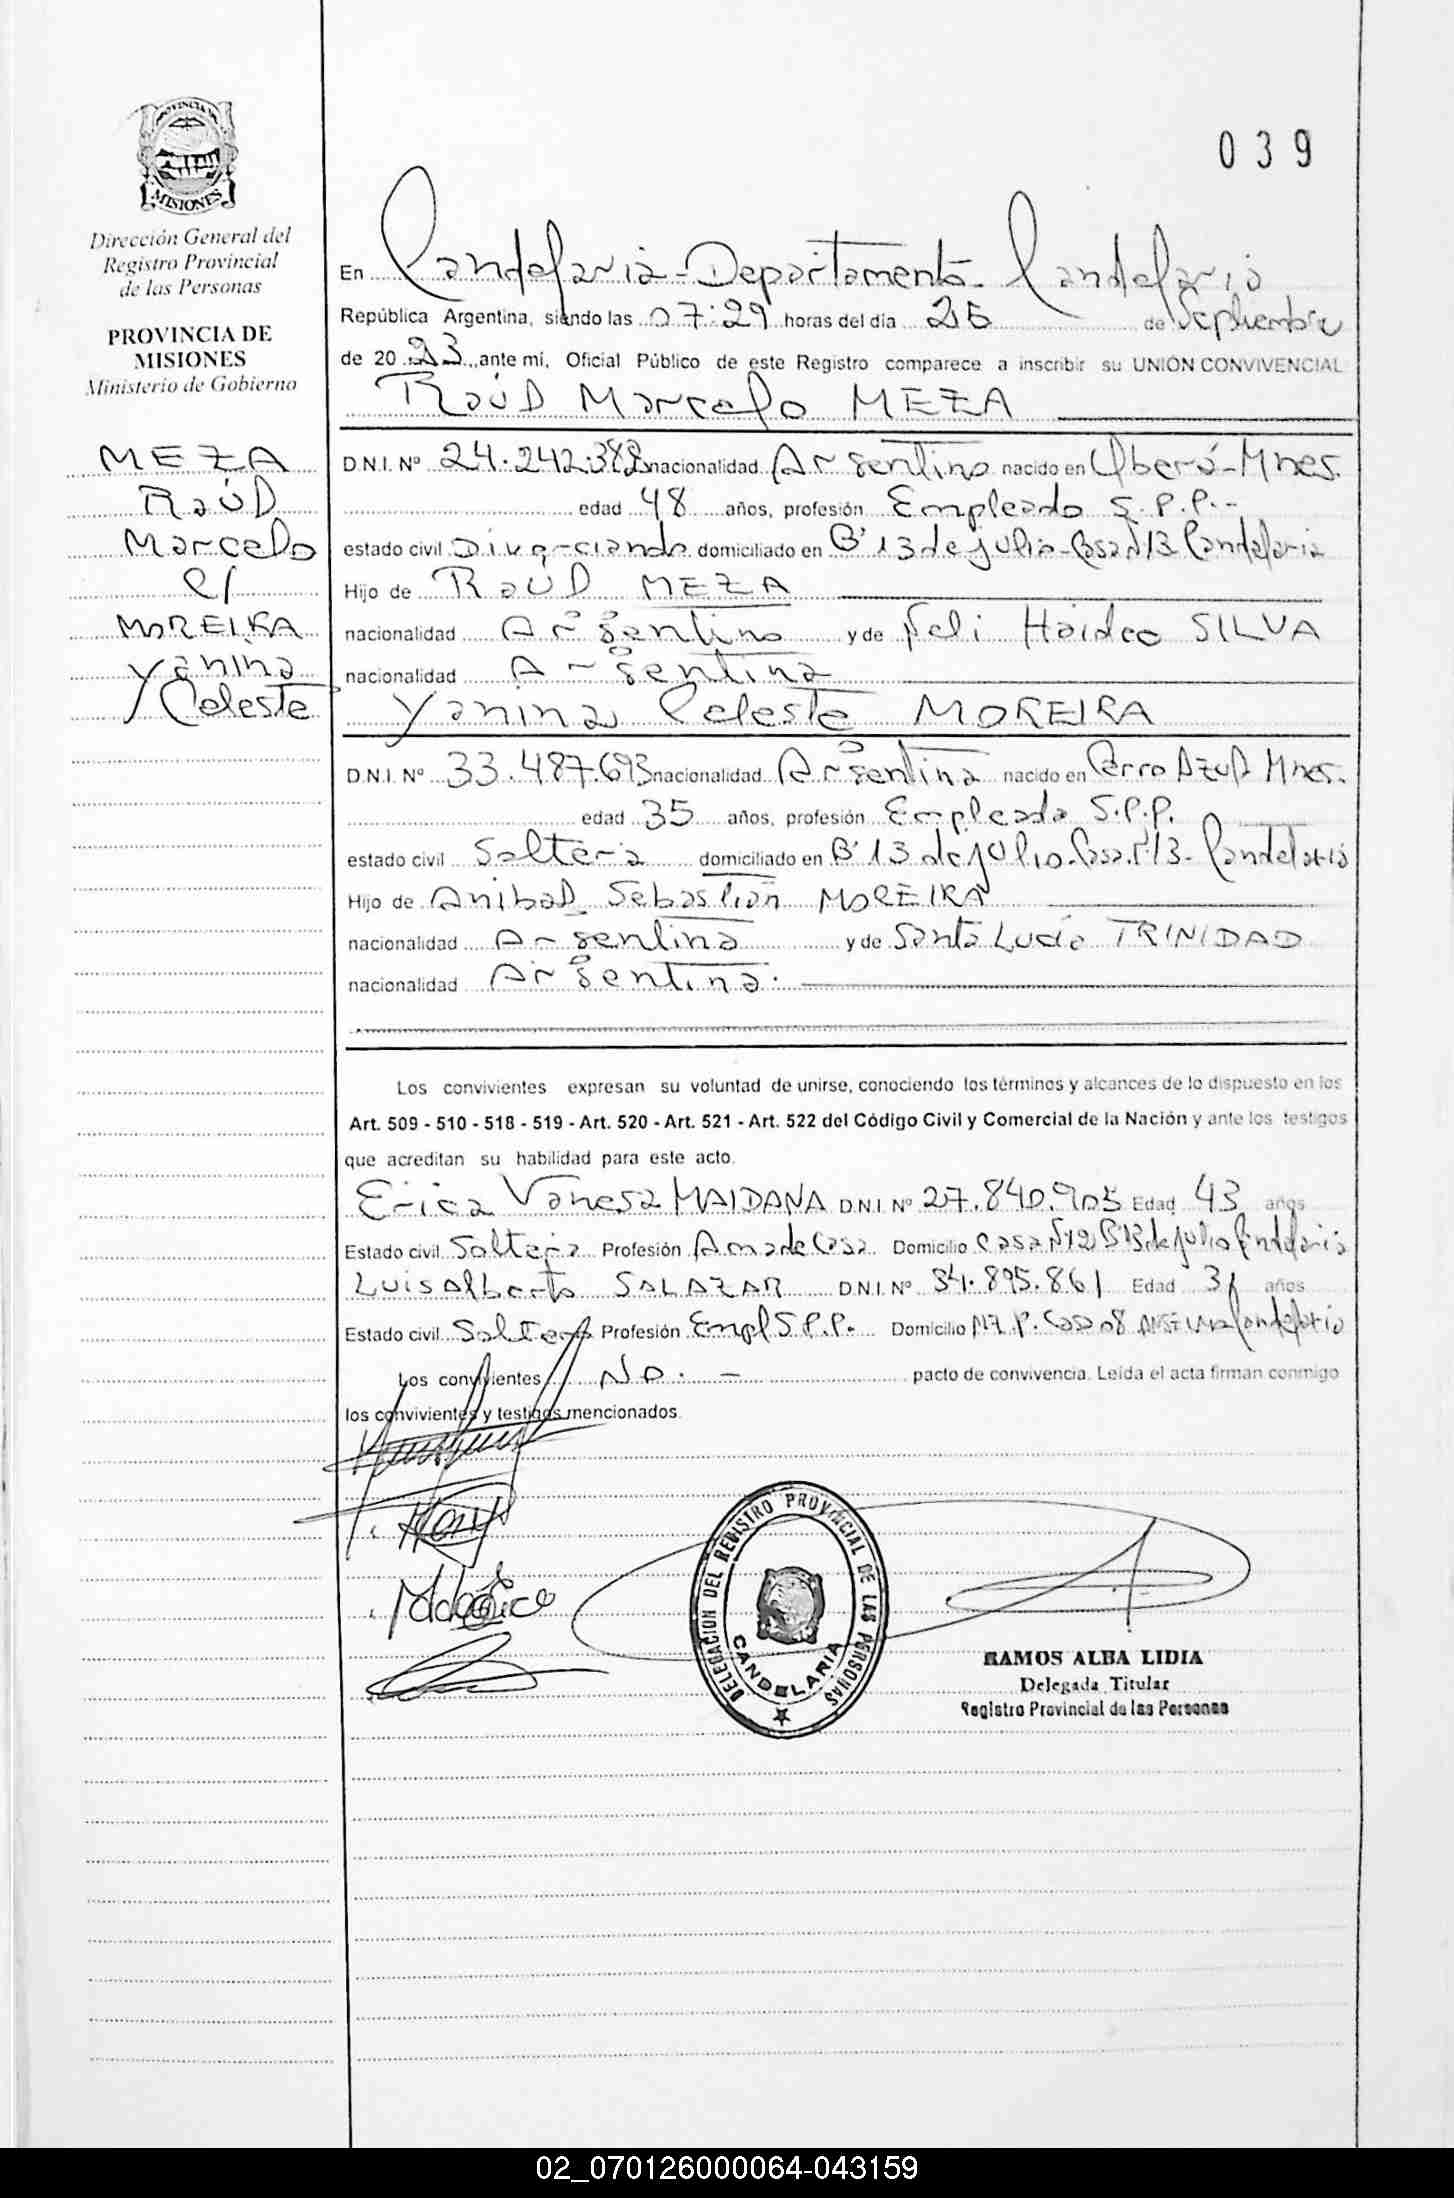 039
PROVINCIA DE
MISIONES
Dirección General del
Registro Provincial
de las Personas
PROVINCIA DE
MISIONES
Ministerio de Gobierno
MEZA
Raúl
Marcelo
c/
MOREIRA
Yanina
Celeste
En Candelaria - Departamento Candelaria
República Argentina, siendo las 07:29 horas del día 25 de Septiembre
de 20 23, ante mi, Oficial Público de este Registro comparece a inscribir su UNIÓN CONVIVENCIAL
Raúl Marcelo MEZA
D.N.I. Nº 24.242.388 nacionalidad Argentino nacido en Oberá - Mnes.
edad 48 años, profesión Empleado S.P.P.-
estado civil Divorciando domiciliado en Bº 13 de julio - Casa nº 13 Candelaria
Hijo de Raúl MEZA
nacionalidad Argentino y de Haidee SILVA
nacionalidad Argentina
Yanina Celeste MOREIRA
D.N.I. Nº 33.487.693 nacionalidad Argentina nacido en Cerro Azul Mnes.
edad 35 años, profesión Empleada S.P.P.
estado civil Soltera domiciliado en Bº 13 de julio - Casa nº 13 - Candelaria
Hijo de Anibal Sebastián MOREIRA
nacionalidad Argentina y de Santa Lucia TRINIDAD
nacionalidad Argentina.
Los convivientes expresan su voluntad de unirse, conociendo los términos y alcances de lo dispuesto en los
Art. 509 - 510 - 518 - 519 - Art. 520 - Art. 521 - Art. 522 del Código Civil y Comercial de la Nación y ante los testigos
que acreditan su habilidad para este acto.
Erica Vanesa MAIDANA D.N.I. Nº 27.840.905 Edad 43 años
Estado civil Soltera Profesión Ama de Casa Domicilio Casa Nº 12 Bº 13 de julio Candelaria
Luis Alberto SALAZAR D.N.I. Nº 34.895.861 Edad 31 años
Estado civil Soltero Profesión Empl S.P.P. Domicilio Casa 08 Candelaria
Los convivientes NO. - pacto de convivencia. Leída el acta firman conmigo
los convivientes y testigos mencionados.
DELEGACION DEL REGISTRO PROVINCIAL DE LAS PERSONAS
CANDELARIA
RAMOS ALBA LIDIA
Delegada Titular
Registro Provincial de las Personas
02_070126000064-043159